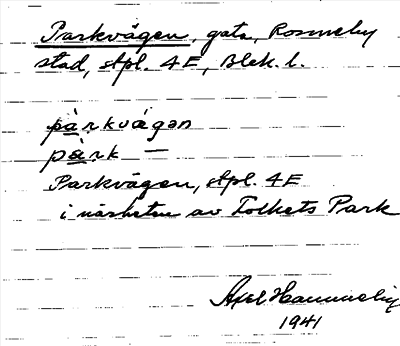 Parkvägen, gata, Ronneby
stad, spl. 4 F, Blek. l.
pàrkvägən
pàrk —
Parkvägen, spl. 4 F
i närheten av Folkets Park
Axel Hammneby
1941